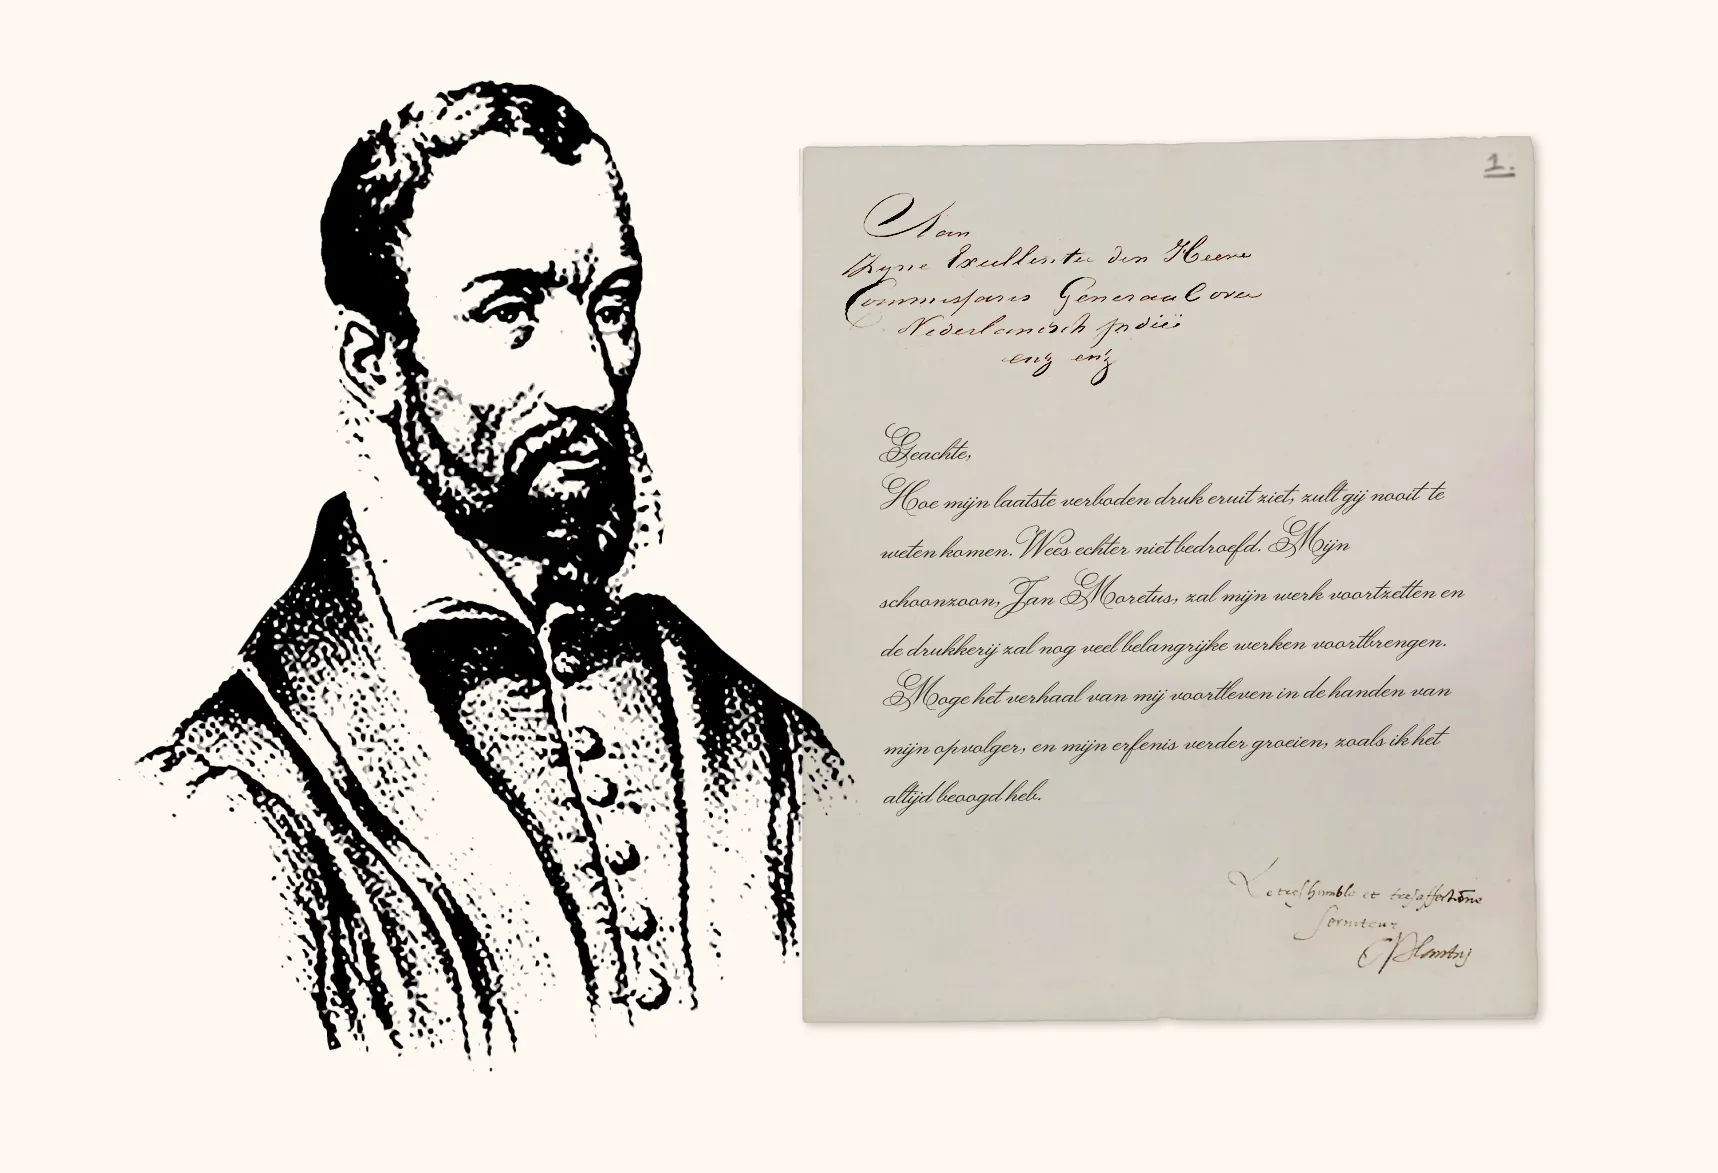 1.
Aan
Zyne Excellentie den Heere
Commissaris Generaal over
Nederlandsch Indië
enz enz
Geachte,
Hoe mijn laatste verboden druk eruit ziet, zult gij nooit te
weten komen. Wees echter niet bedroefd. Mijn
schoonzoon, Jan Moretus, zal mijn werk voortzetten en
de drukkerij zal nog veel belangrijke werken voortbrengen.
Moge het verhaal van mij voortleven in de handen van
mijn opvolger, en mijn erfenis verder groeien, zoals ik het
altijd beoogd heb.
humble et
serviteur
CPlantin